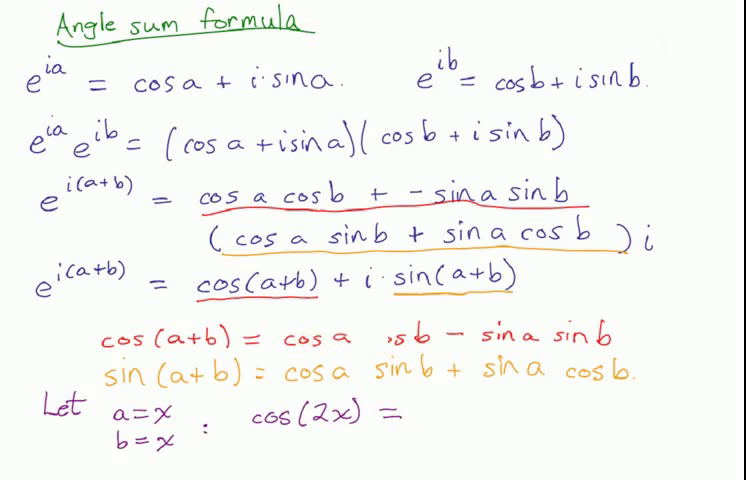 Angle sum formula
e^{ia} = cos a + i·sin a. e^{ib} = cos b + i sin b.
e^{ia} e^{ib} = (cos a + i sin a)(cos b + i sin b)
e^{i(a+b)} = cos a cos b + - sin a sin b
(cos a sin b + sin a cos b) i
e^{i(a+b)} = cos(a+b) + i· sin(a+b)
cos(a+b) = cos a sb - sin a sin b
sin(a+b) = cos a sin b + sin a cos b.
Let a = x : cos(2x) =
b = x